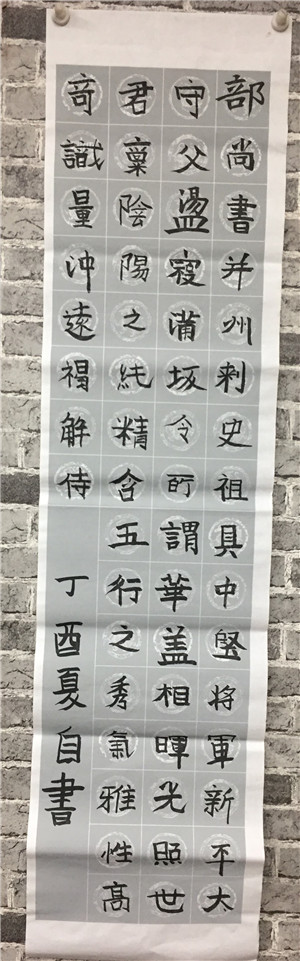 部尚書并州刺史祖具中堅将軍新平太
守父盪寇蒲坂令所謂華盖相暉光照世
君稟陰陽之純精含五行之秀氣雅性高
奇識量沖遠褐解侍
丁酉夏自書